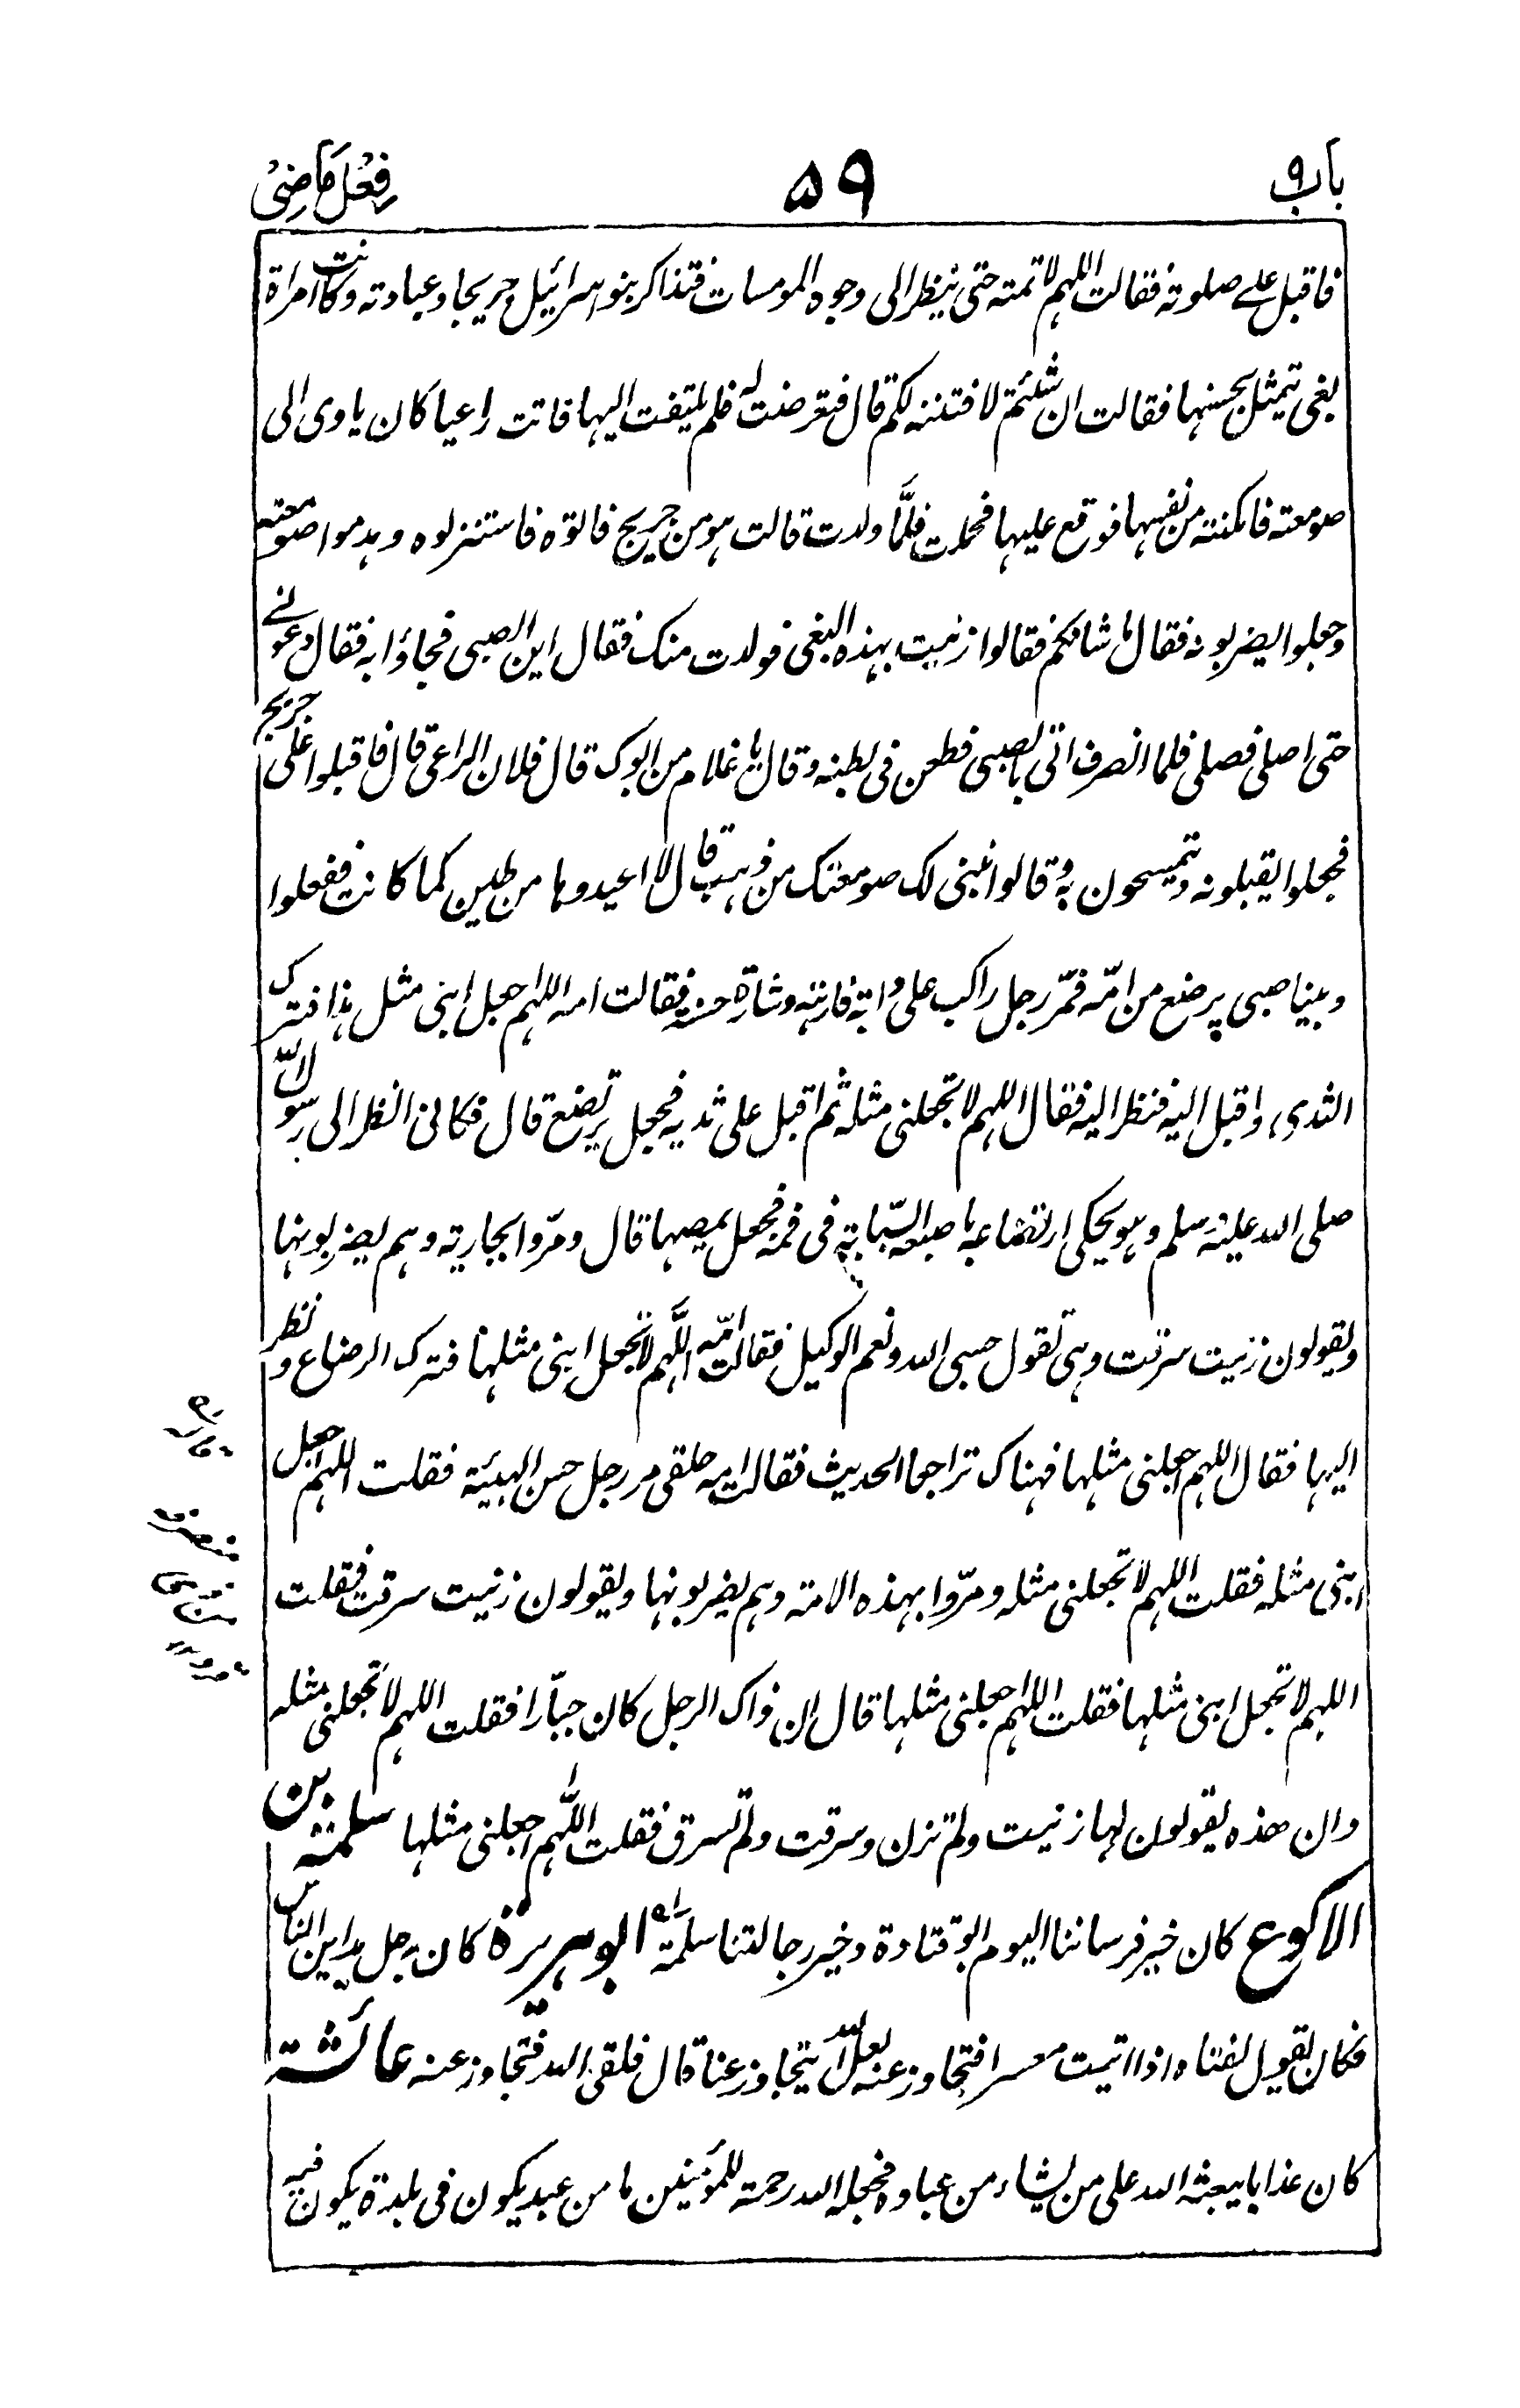 باب ٩
٥٩
فِعْل مَاضِیْ
فاقبل علے صلوته فقالت اللهم لا تمته حتى ينظر الى وجوه المومسات فتذاكر بنو اسرائيل جريجا وعبادته وكانت امراة
بغى يتمثل بحسنها فقالت ان شئتم لافتننه لكم قال فتعرضت له فلم يلتفت اليها فاتت راعيا كان ياوى الى
صومعته فامكنته من نفسها فوقع عليها فحملت فلمّا ولدت قالت هو من جريج فاتوه فاستنزلوه وهدموا صومعته
وجعلوا يضربونه فقال ما شانكم فقالوا زنيت بهذه البغى فولدت منك فقال اين الصبى فجاؤا به فقال دعونے
حتى اصلى فصلى فلما انصرف اتى بالصبى فطعن فى بطنه وقال يا غلام من ابوك قال فلان الراعى قال فاقبلوا على جريج
فجعلوا يقبلونه ويتمسحون به وقالوا نبنى لك صومعتك من ذهب قال لا اعيدوها من طين كما كانت ففعلوا
وبينا صبى يرضع من امّه فمرّ رجل راكب على دابة فارهة وشارة حسنة فقالت امه اللهم اجعل ابنى مثل هذا فترك
الثدى واقبل اليه فنظر اليه فقال اللهم لا تجعلنى مثله ثم اقبل على ثديه فجعل يرتضع قال فكانى انظر الى رسول الله
صلى الله عليه وسلم وهو يحكى ارتضاعه باصبعه السّبابة فى فمه فجعل يمصها قال ومرّوا بجارية وهم يضربونها
ويقولون زنيت سرقت وهى تقول حسبى الله ونعم الوكيل فقالت امّه اللّهم لا تجعل ابنى مثلها فترك الرضاع ونظر
اليها فقال اللهم اجعلنى مثلها فهناك تراجعا الحديث فقالت امه حلقى مر رجل حسن الهيئة فقلت اللهم اجعل
ابنى مثله فقلت اللهم لا تجعلنى مثله ومرّوا بهذه الامة وهم يضربونها ويقولون زنيت سرقت فقلت
اللهم لا تجعل ابنى مثلها فقلت اللهم اجعلنى مثلها قال ان ذاك الرجل كان جبّارا فقلت اللهم لا تجعلنى مثله
وان هذه يقولون لها زنيت ولم تزن وسرقت ولم تسرق فقلت اللّهم اجعلنى مثلها سلمة بن
الاكوع كان خير فرساننا اليوم ابو قتادة وخير رجالتنا سلمة ابو هريرة كان رجل يداين الناس
فكان يقول لفتاه اذا اتيت معسرا فتجاوز عنه لعل الله يتجاوز عنا قال فلقى الله فتجاوز عنه عائشة
كان عذابا يبعثه الله على من يشاء من عباده فجعله الله رحمة للمؤمنين ما من عبد يكون فى بلدة يكون فيه